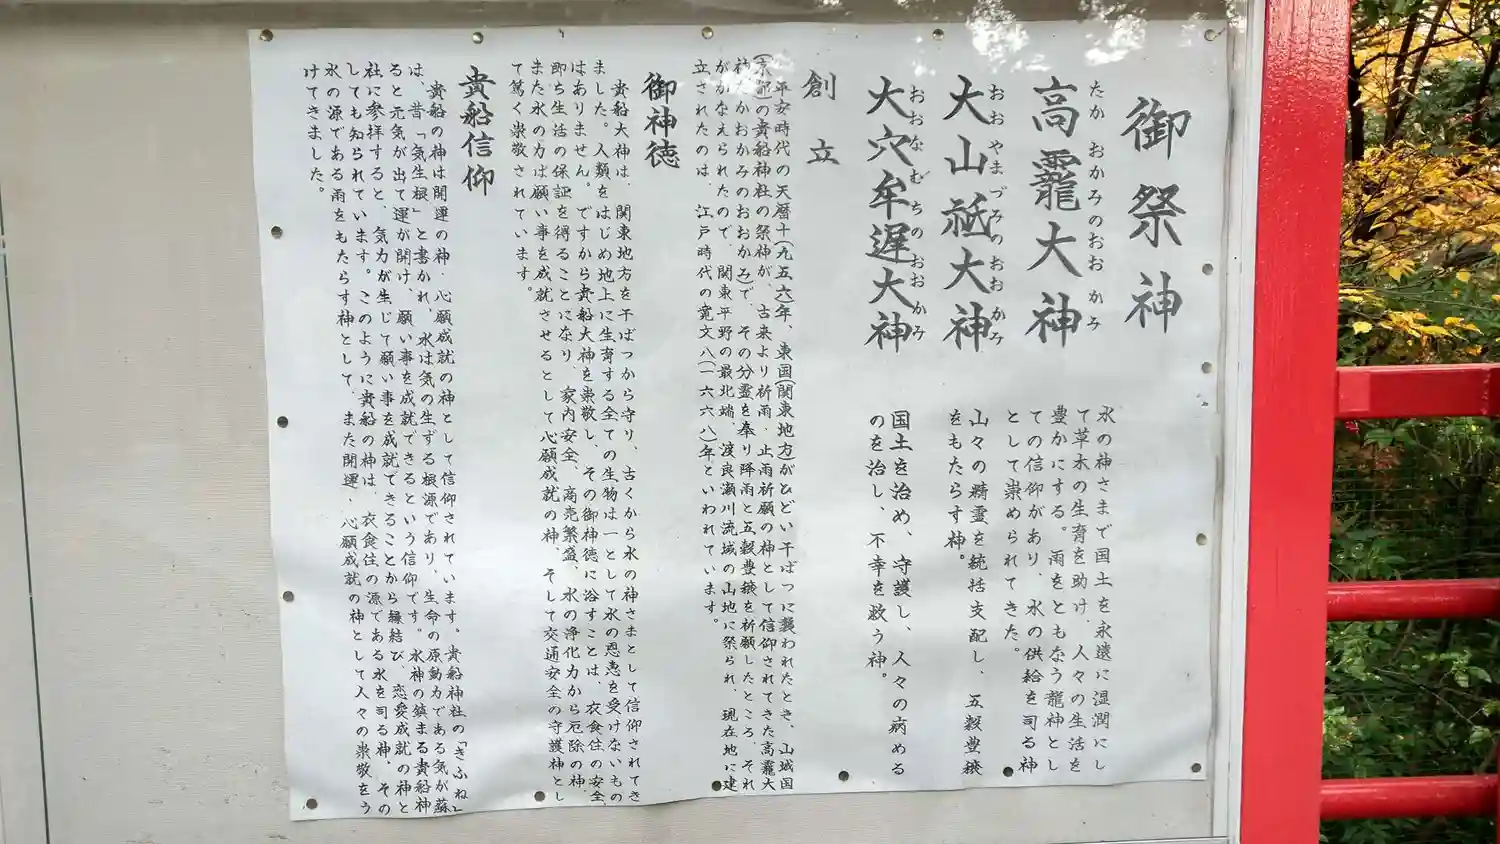 御祭神
たか おかみのおお かみ
高龗大神
水の神さまで国土を永遠に湿潤にし
て草木の生育を助け、人々の生活を
豊かにする。雨をともなう龍神とし
ての信仰があり、水の供給を司る神
として崇められてきた。
おおやまづみのおおかみ
大山祗大神
山々の精霊を統括支配し、五穀豊穣
をもたらす神。
おおなむちのおおかみ
大穴牟遅大神
国土を治め、守護し、人々の病める
のを治し、不幸を救う神。
創立
平安時代の天暦十(九五六)年、東国(関東地方)がひどい干ばつに襲われたとき、山城国
(京都)の貴船神社の祭神が、古来より祈雨・止雨祈願の神として信仰されてきた高龗大
神(たかおかみのおおかみ)で、その分霊を奉り降雨と五穀豊穣を祈願したところ、それ
がかなえられたので、関東平野の最北端、渡良瀬川流域の山地に祭られ、現在地に建
立されたのは、江戸時代の寛文八(一六六八)年といわれています。
御神徳
貴船大神は、関東地方を干ばつから守り、古くから水の神さまとして信仰されてき
ました。人類をはじめ地上に生育する全ての生物は一として水の恩恵を受けないもの
はありません。ですから貴船大神を崇敬し、その御神徳に浴すことは、衣食住の安全、
即ち生活の保証を得ることになり、家内安全、商売繁盛、水の浄化力から厄除の神、
また水の力は願い事を成就させるとして心願成就の神、そして交通安全の守護神とし
て篤く崇敬されています。
貴船信仰
貴船の神は開運の神・心願成就の神として信仰されています。貴船神社の「きふね」
は、昔「気生根」と書かれ、水は気の生ずる根源であり、生命の原動力である気が蘇
ると元気が出て運が開け、願い事を成就できるという信仰です。水神の鎮まる貴船神
社に参拝すると、気力が生じて願い事を成就できることから縁結び、恋愛成就の神と
しても知られています。このように貴船の神は、衣食住の源である水を司る神、その
水の源である雨をもたらす神として、また開運・心願成就の神として人々の崇敬をう
けてきました。